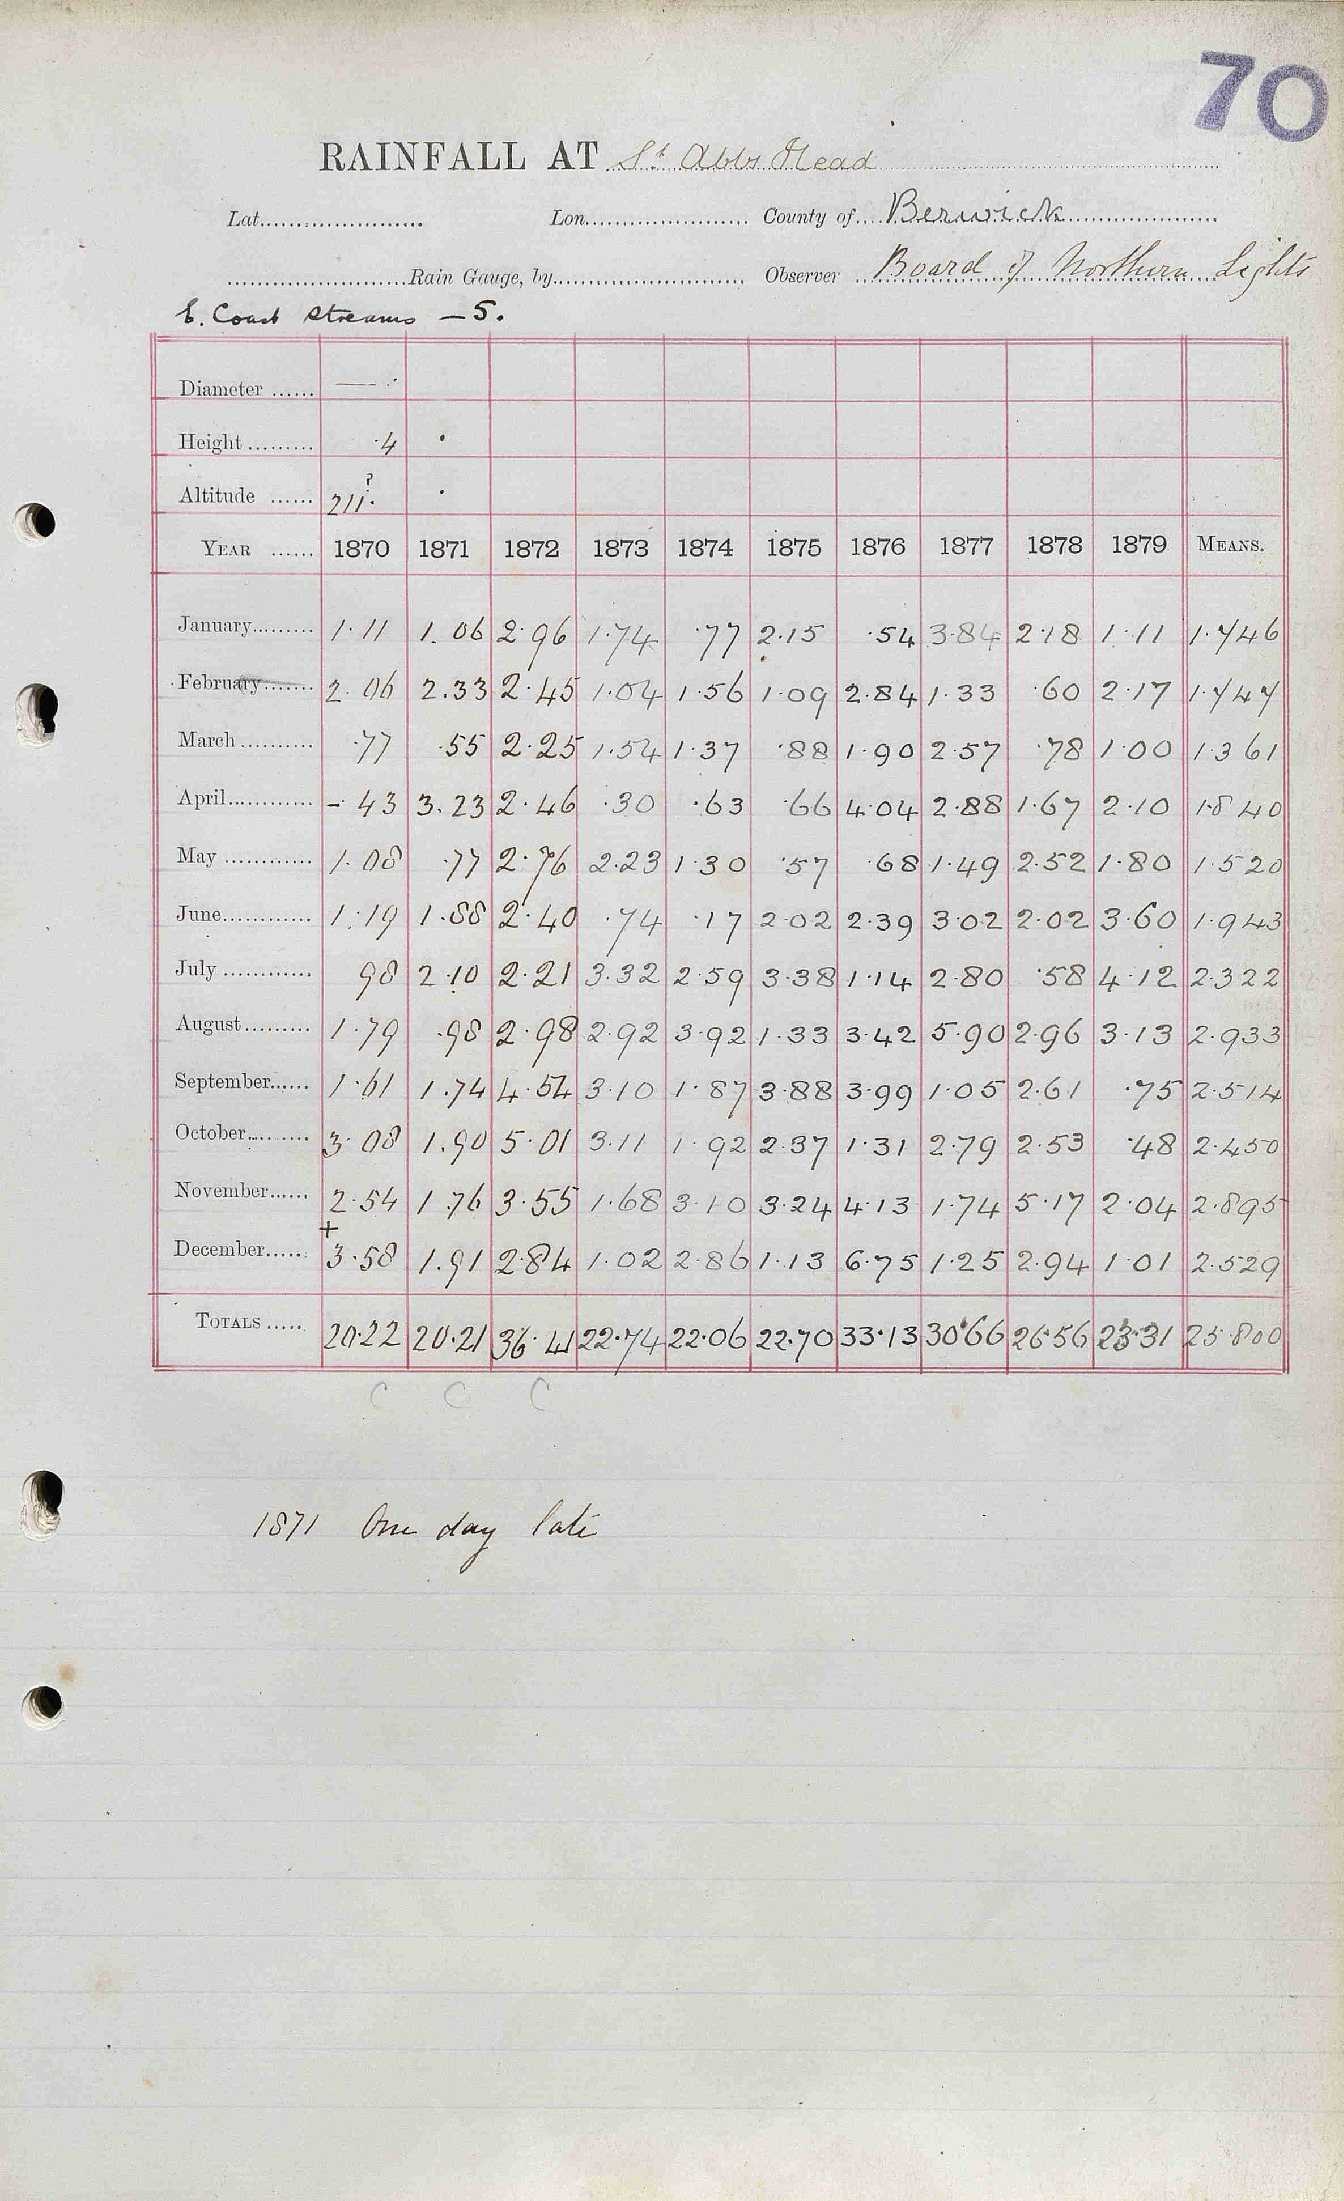 70
RAINFALL AT St Abbs Head
Lat. Lon. County of Berwick
Rain Gauge, by Observer Board of Northern Lights
E. Coast Streams – 5.
Diameter —
Height ·4
Altitude 211· ?
YEAR 1870 1871 1872 1873 1874 1875 1876 1877 1878 1879 MEANS.
January 1·11 1.06 2·96 1·74 ·77 2·15 ·54 3·84 2·18 1·11 1·746
February 2.06 2.33 2·45 1·04 1·56 1·09 2·84 1·33 ·60 2·17 1·747
March ·77 ·55 2·25 1·54 1·37 ·88 1·90 2·57 ·78 1·00 1·361
April – 43 3.23 2·46 ·30 ·63 ·66 4·04 2·88 1·67 2·10 1·840
May 1·08 ·77 2·76 2·23 1·30 ·57 ·68 1·49 2·52 1·80 1·520
June 1·19 1·88 2·40 ·74 ·17 2·02 2·39 3·02 2·02 3·60 1·943
July 98 2·10 2·21 3·32 2·59 3·38 1·14 2·80 ·58 4·12 2·322
August 1·79 ·98 2·98 2·92 3·92 1·33 3·42 5·90 2·96 3·13 2·933
September 1·61 1.74 4·54 3·10 1·87 3·88 3·99 1·05 2·61 ·75 2·514
October 3·08 1.90 5·01 3·11 1·92 2·37 1·31 2·79 2·53 ·48 2·450
November 2·54 1·76 3·55 1·68 3·10 3·24 4·13 1·74 5·17 2·04 2·895
December + 3·58 1.91 2·84 1·02 2·86 1·13 6·75 1·25 2·94 1·01 2·529
TOTALS 20·22 20·21 36·41 22·74 22·06 22·70 33·13 30·66 26·56 23·31 25·800
C C C
1871 One day late